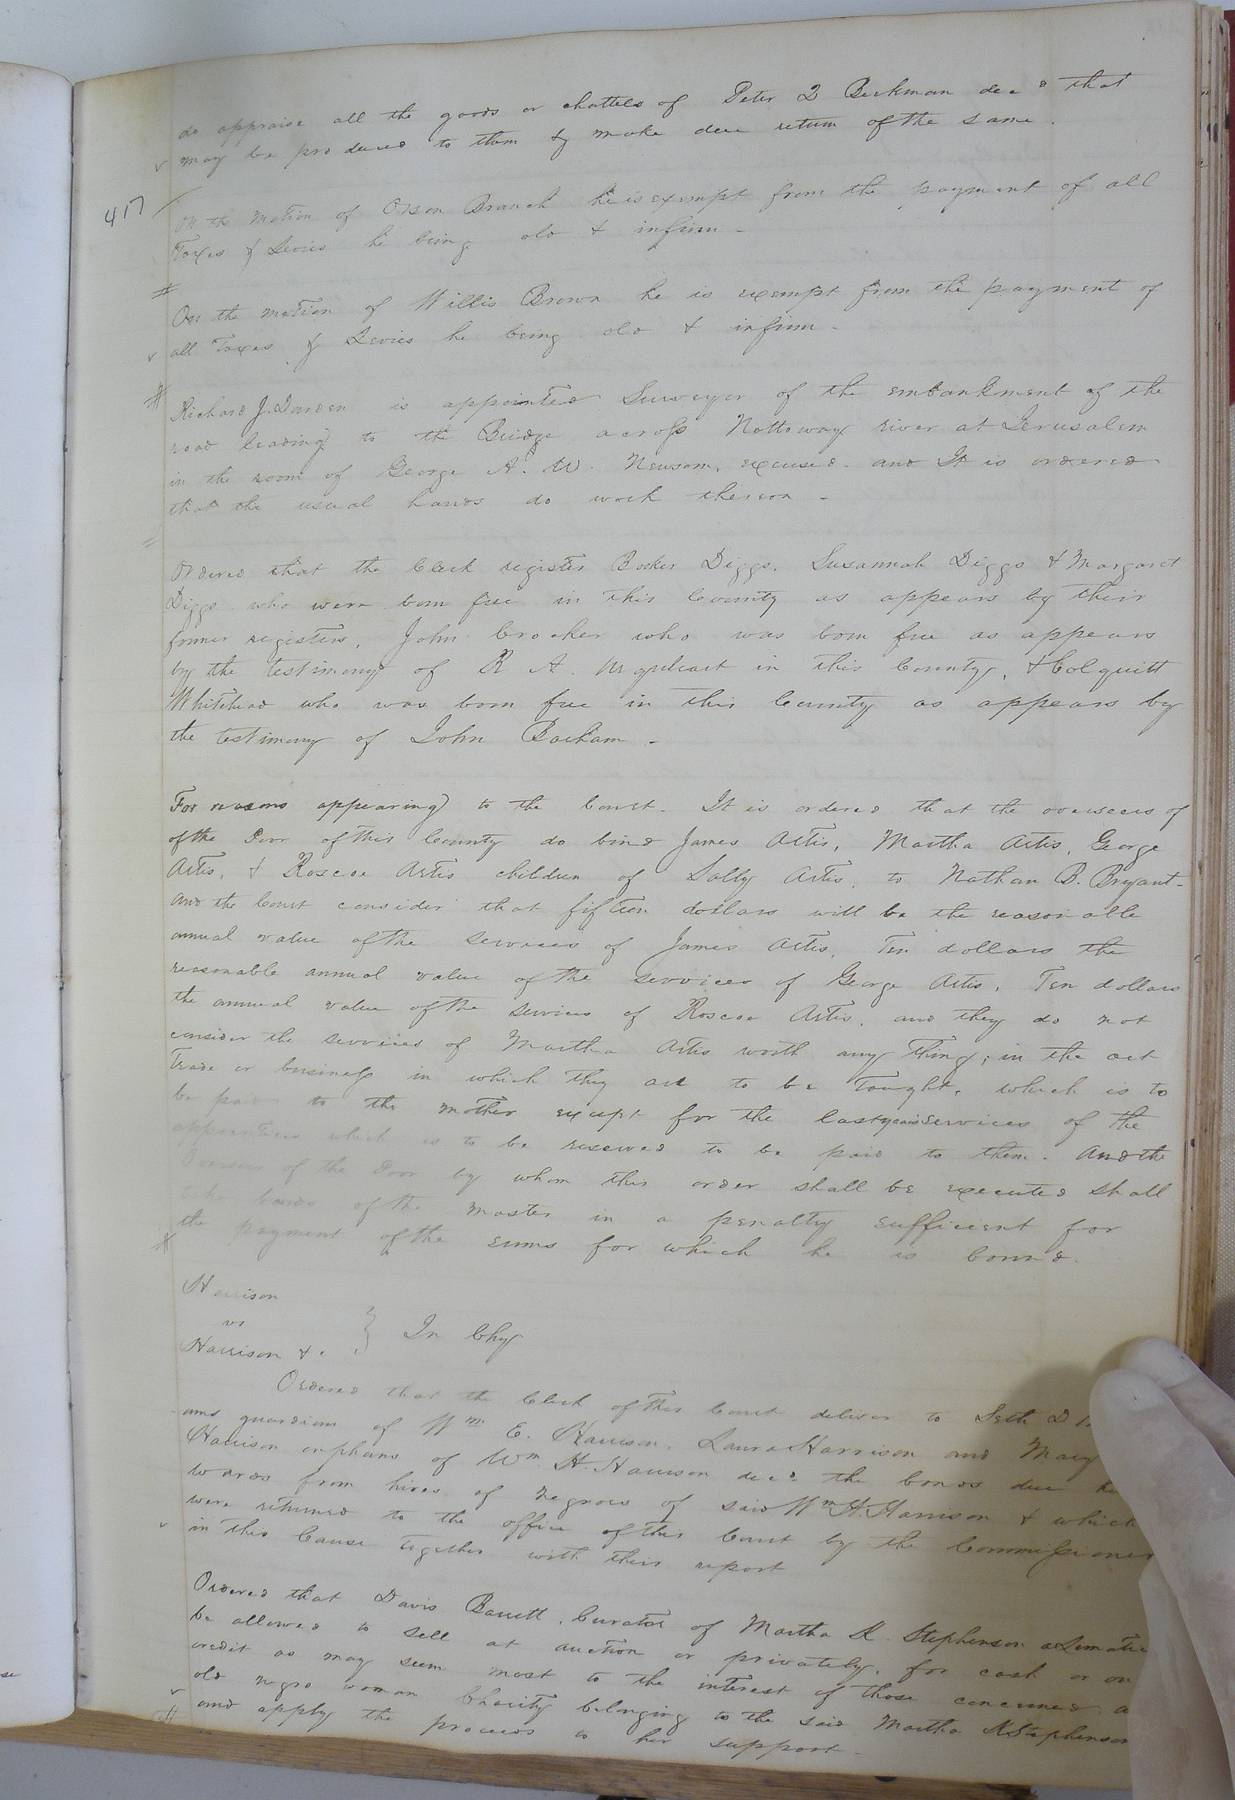 do appraise all the goods or chattels of Peter Beckman decd that
may be produced to them & make due return of the same.
417
On the motion of Orson Branch he is exempt from the payment of all
Taxes & Levies he being old & infirm -
On the motion of Willis Brown he is exempt from the payment of
all Taxes & Levies he being old & infirm -
Richard J. Darden is appointed Surveyor of the embankment of the
road leading to the Bridge across Nottoway river at Jerusalem
in the room of George A. W. Newsom, excused. and It is ordered
that the usual hands do work thereon -
Ordered that the Clerk register Diggs, Susannah Diggs & Margaret
Diggs who were born free in this County as appears by their
former registers, John Crocker who was born free as appears
by the testimony of R A. Urquhart in this County, & Colquitt
Whitehead who was born free in this County as appears by
the testimony of John Barham -
For reasons appearing to the Court. It is ordered that the overseers of
of the Poor of this County do bind James Artis, Martha Artis, George
Artis, & Roscoe Artis children of Sally Artis, to Nathan B. Bryant -
and the Court consider that fifteen dollars will be the reasonable
annual value of the services of James Artis, Ten dollars the
reasonable annual value of the services of George Artis, Ten dollars
the annual value of the services of Roscoe Artis, and they do not
consider the services of Martha Artis worth any thing, in the art
Trade or business in which they are to be taught, which is to
be paid to the mother except for the last years services of the
apprentices which is to be reserved to be paid to them. And the
Overseers of the Poor by whom this order shall be executed shall
take bonds of the master in a penalty sufficient for
the payment of the sums for which he is bound.
Harrison
vs
Harrison &c } In Chy
Ordered that the Clerk of this Court deliver to Seth D
and guardian of Wm. E. Harrison, Laura Harrison and Mary
Harrison orphans of Wm. H. Harrison decd the bonds due
wards from hires of negroes of said Wm H. Harrison & which
were returned to the office of this Court by the Commissioner
in this Cause together with their report
Ordered that Davis Barrett, Curator of Martha K. Stephenson a Lunatic
be allowed to sell at auction or privately, for cash or on
credit as may seem most to the interest of those concerned a
old negro woman Charity belonging to the said Martha K Stephenson
and apply the proceeds to her support -